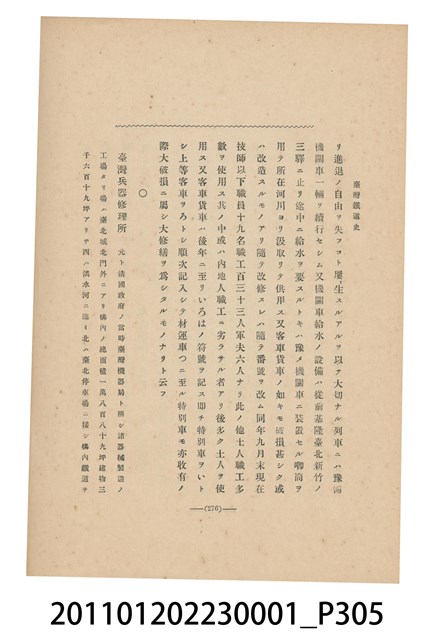 臺灣鐵道史
リ進退ノ自由ヲ失フコト屢生スルアルヲ以ク大切ナル列車ニハ豫備
機關車一輛ヲ續行セシム又機關車給水ノ設備ハ從前基隆臺北新竹ノ
三驛ニ止リ途中ニ給水ヲ要スルトキハ豫メ機關車ニ裝置セル喞筒ヲ
用テ所在河川ヨリ汲取リテ供用ス又客車貨車ノ如キモ破損甚シク或
ハ改造スルモノアリ隨テ改修スレハ隨テ番號ヲ改ム同年九月末現在
技師以下職員十九名職工百三十三人軍夫六人ナリ此ノ他土人職工多
數ヲ使用ス其ノ中或ハ內地人職工ニ劣ラサル者アリ後多ク土人ヲ使
用ス又客車貨車ハ後年ニ至リいろはノ符號ヲ記ス卽チ特別車ヲいト
シ上等客車ヲろトシ順次記入シテ材運車つニ至ル特別車モ亦收有ノ
際大破損ニ屬シ大修繕ヲ爲シタルモノナリト云フ
○
臺灣兵器修理所 元ト淸國政府ノ當時臺灣機器局ト稱シ諸器械製造ノ
工場タリ場ハ臺北城北門外ニアリ構內ノ總面積一萬八百八十九坪建物三
千六百十九坪アリテ西ハ淡水河ニ臨ミ北ハ臺北停車場ニ接シ構內鐵道ヲ
(276)
201101202230001_P305